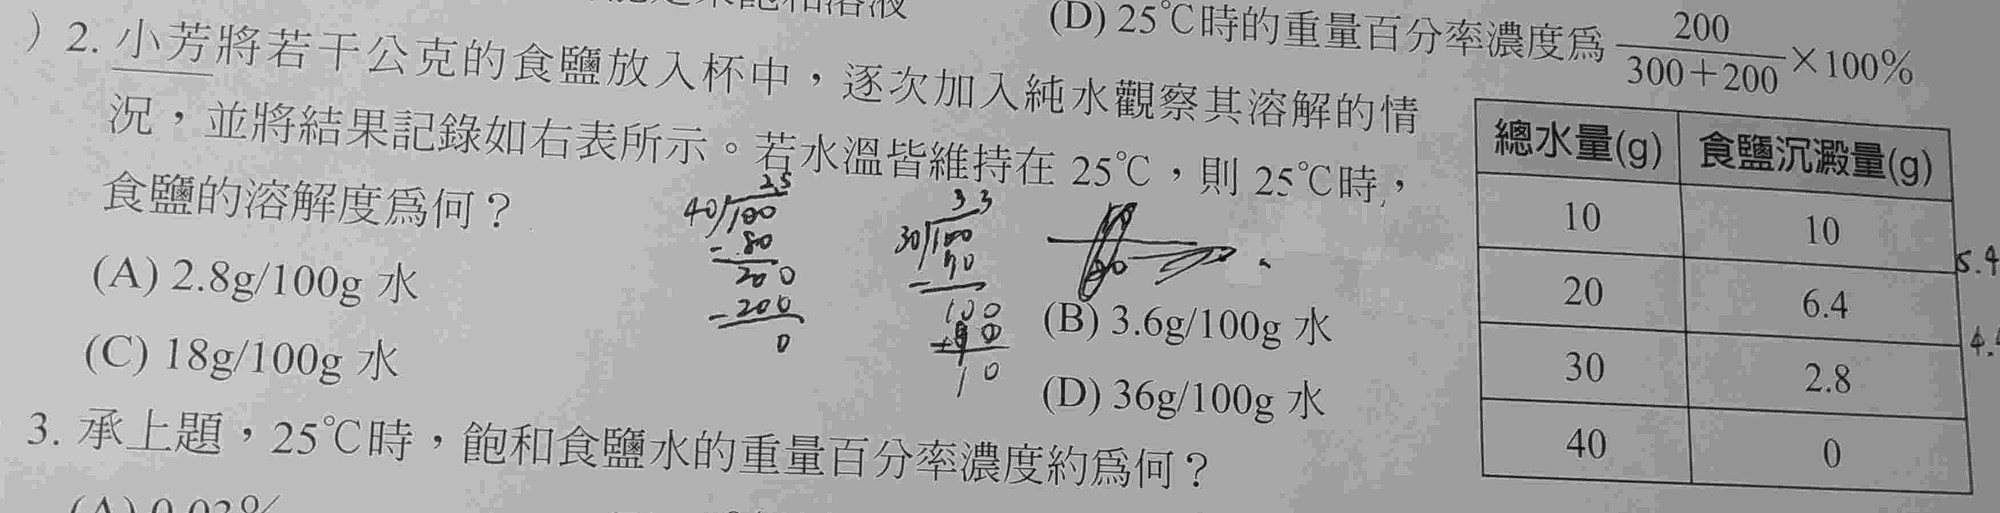 (D) 25℃時的重量百分率濃度為 200/300+200 ×100%
) 2. 小芳將若干公克的食鹽放入杯中，逐次加入純水觀察其溶解的情
況，並將結果記錄如右表所示。若水溫皆維持在 25℃，則 25℃時，
食鹽的溶解度為何？
(A) 2.8g/100g 水
(B) 3.6g/100g 水
(C) 18g/100g 水
(D) 36g/100g 水
總水量(g) 食鹽沉澱量(g)
10 10
20 6.4
30 2.8
40 0
25
40 100
- 80
200
- 200
0
33
30 100
90
100
90
10
3. 承上題，25℃時，飽和食鹽水的重量百分率濃度約為何？